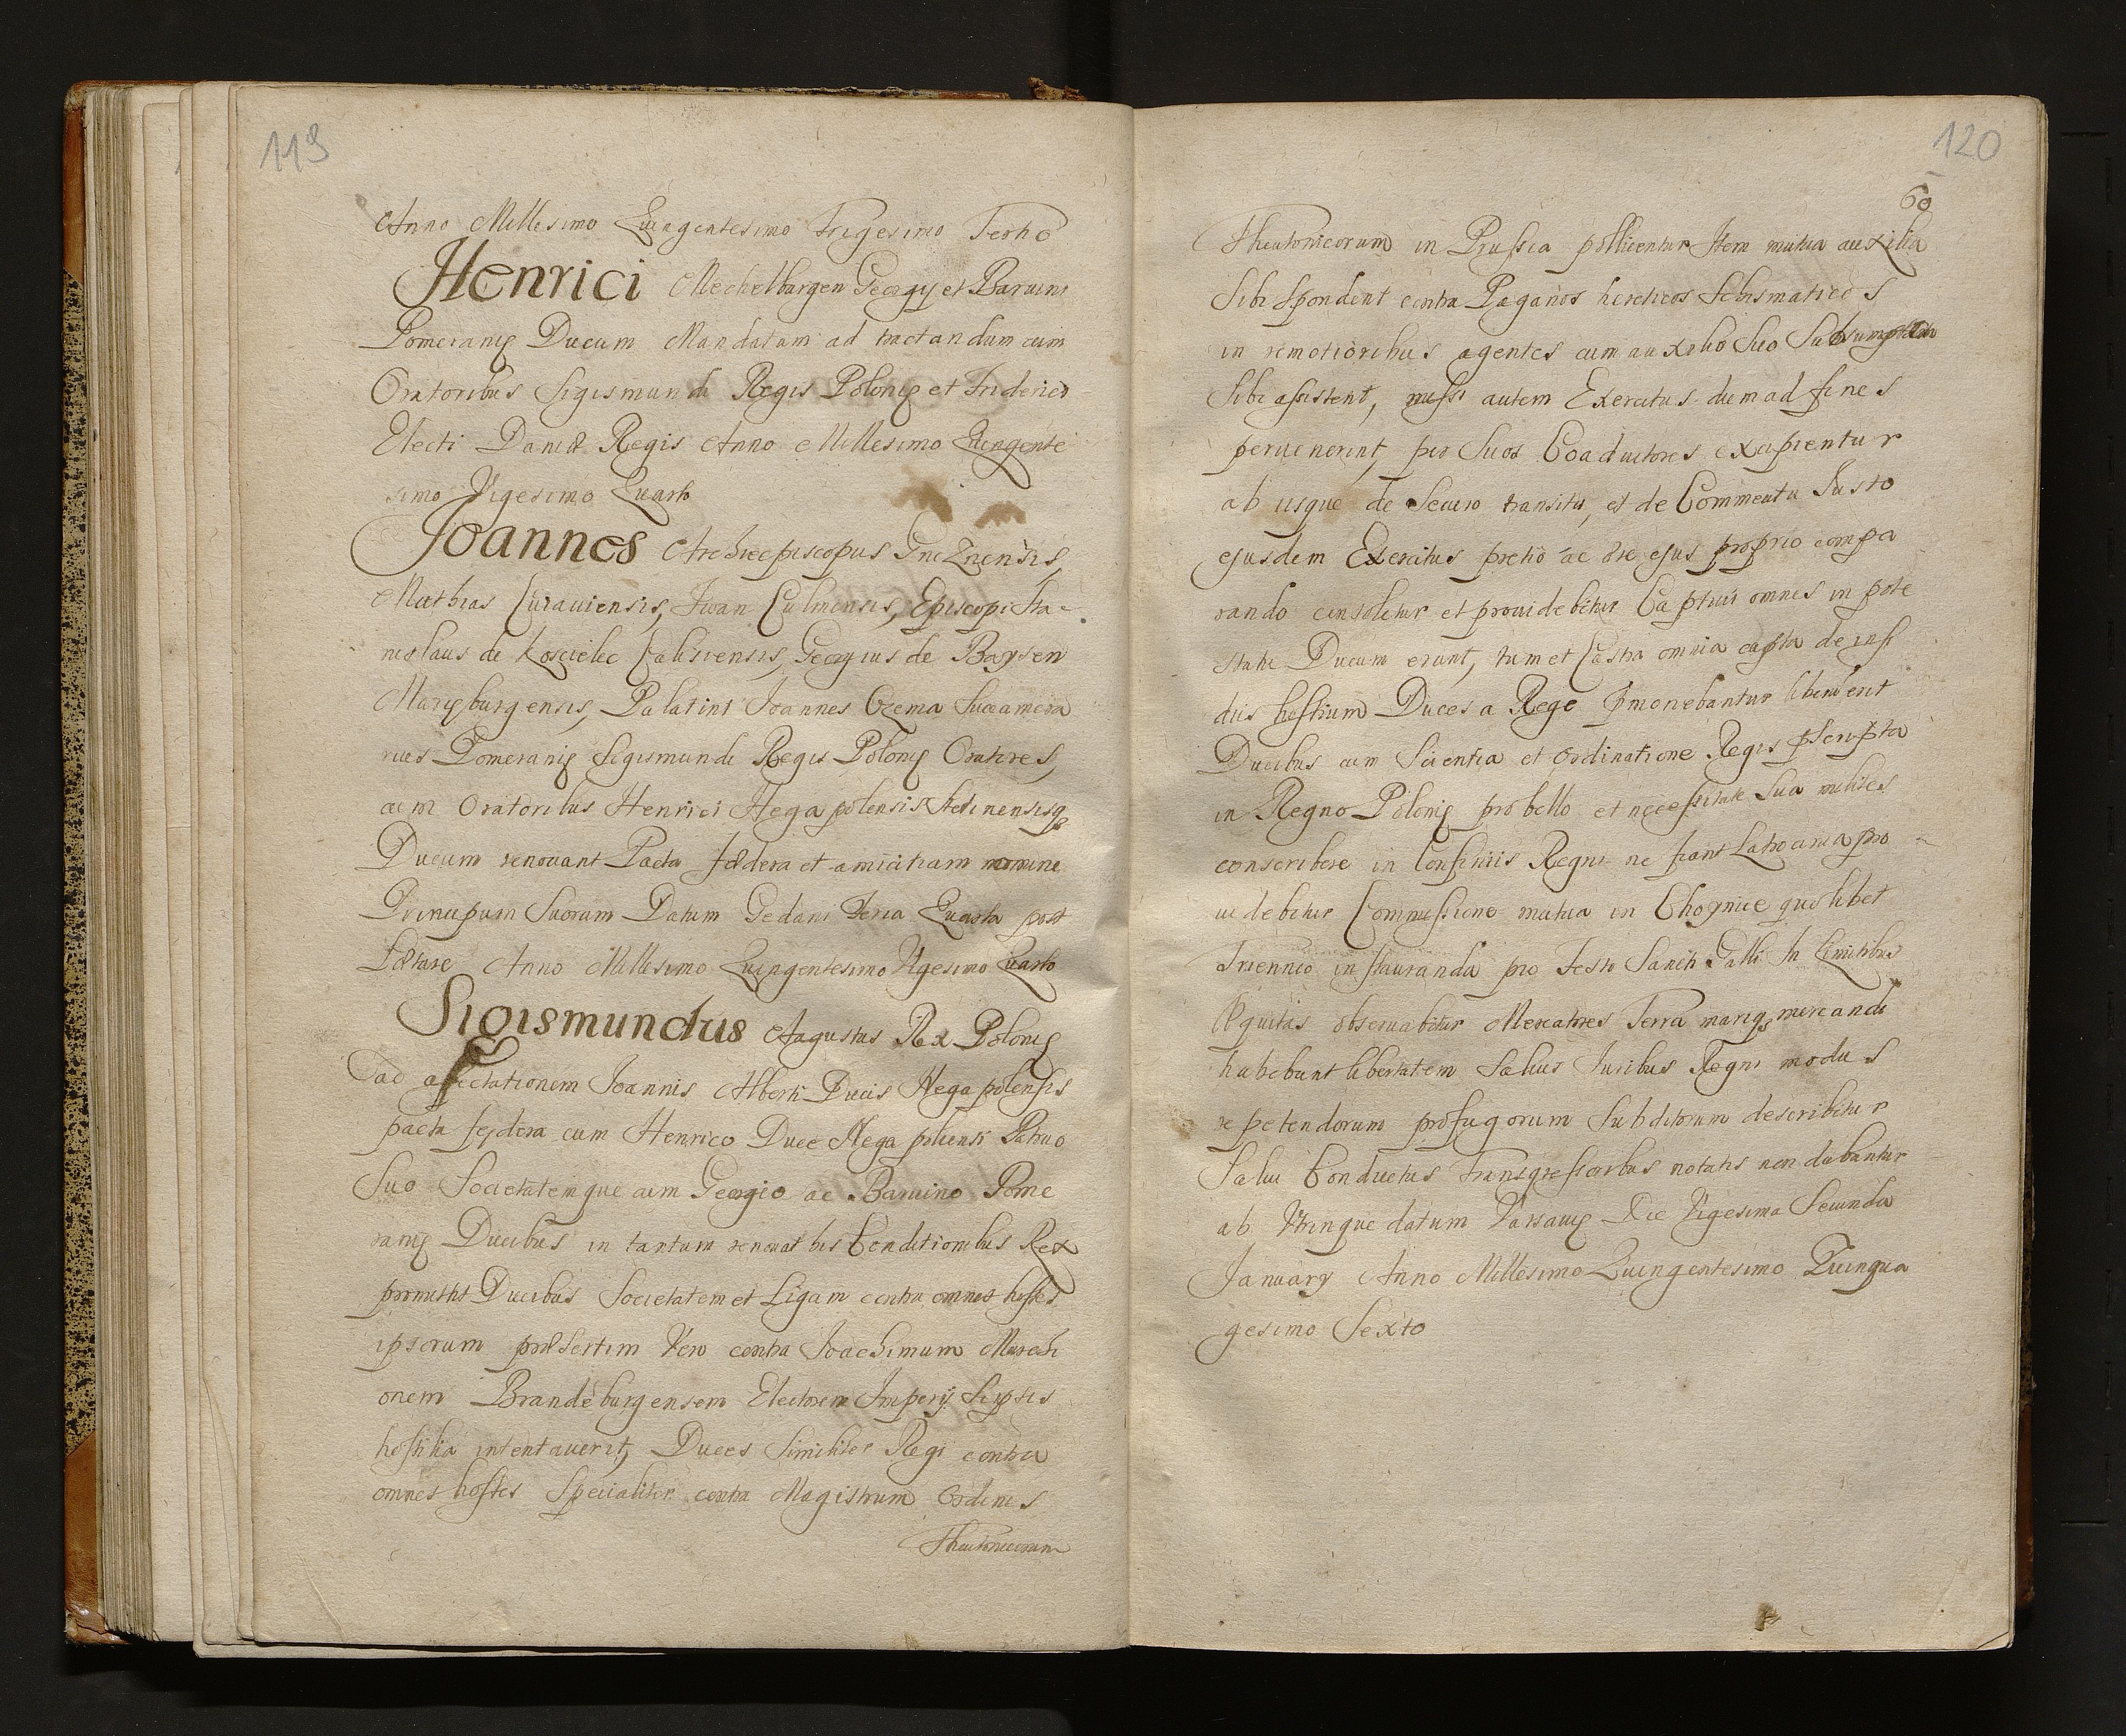 119
Anno Millesimo Quingentesimo Trigesimo Tertio
Henrici Mechelburgen Georgÿ et Baruini
Pomeranię Ducum Mandatum ad tractandum cum
Oratoribus Sigismundi Regis Polonię et Friderici
Electi Daniæ Regis Anno Millesimo Quingente
simo Vigesimo Quarto
Joannes Archiepiscopus Gneznensis,
Mathias Cuiauiensis, Iwan Culmensis, Episcopi Sta-
nislaus de Koscielec Calisiensis, Georgius de Baysen
Marięburgensis, Palatini Joannes Czema Succamera
rius Pomeranię Sigismundi Regis Polonię Oratores,
cum Oratoribus Henrici Megapolensis Stetinensisq3
Ducum renouant Pacta fædera et amicitiam nomine
Principum Suorum Datum Gedani Feria Quarta post
Lætare Anno Millesimo Quingentesimo Vigesimo Quarto
Sigismundus Augustus Rex Polonię
ad affectationem Joannis Alberti Ducis Megapolensis
pacta fędera cum Henrico Duce Megapoliensi Patruo
Suo Societatemque cum Georgio ac Baruino Pome
ranię Ducibus in tantum renouat his Conditionibus Rex
promittit Ducibus Societatem et Ligam contra omnes hostes
ipsorum præsertim Vero contra Joachimum Marchi
onem Brandeburgensem Electorem Imperÿ Si ipsis
hostilia intentauerit, Duces Similiter Regi contra
omnes hostes Specialiter contra Magistrum Ordinis
Theutonicorum
120
60
Theutonicorum in Prussia pollicentur Item mutua auxilia
Sibi Spondent contra Paganos hereticos Schismaticos
in remotioribus agentes cum auxilio Suo
Sibi assistent, missi autem Exercitus dum ad fines
peruenerint, per Suos Coadiutores excipientur
ab iisque de Securo transitu, et de Commeatu Justo
ejusdem Exercitus pretio ac ære ejus proprio compa
rando consuletur et prouidebitur Captiui omnes in pote
state Ducum erunt, tum et Castra omnia capta de insi
diis hostium Duces a Rege pmonebantur liberum erit
Ducibus cum Scientia et Ordinatione Regis pscripta
in Regno Polonię pro bello et necessitate Sua milites
conscribere in Confiniis Regni ne fiant Latrocinia pro
uidebitur Commissione mutua in Choynice quolibet
Triennio instauranda pro Festo Sancti Galli In Limitibus
Æquitas obseruabitur Mercatores Terra mariq3 mercandi
habebunt libertatem Saluis Juribus Regni modus
repetendorum profugorum Subditorum describitur
Salui Conductus Transgressoribus notatis non dabantur
ab Vtrinque datum Varsauię Die Vigesima Secunda
Januarÿ Anno Millesimo Quingentesimo Quinqua
gesimo Sexto